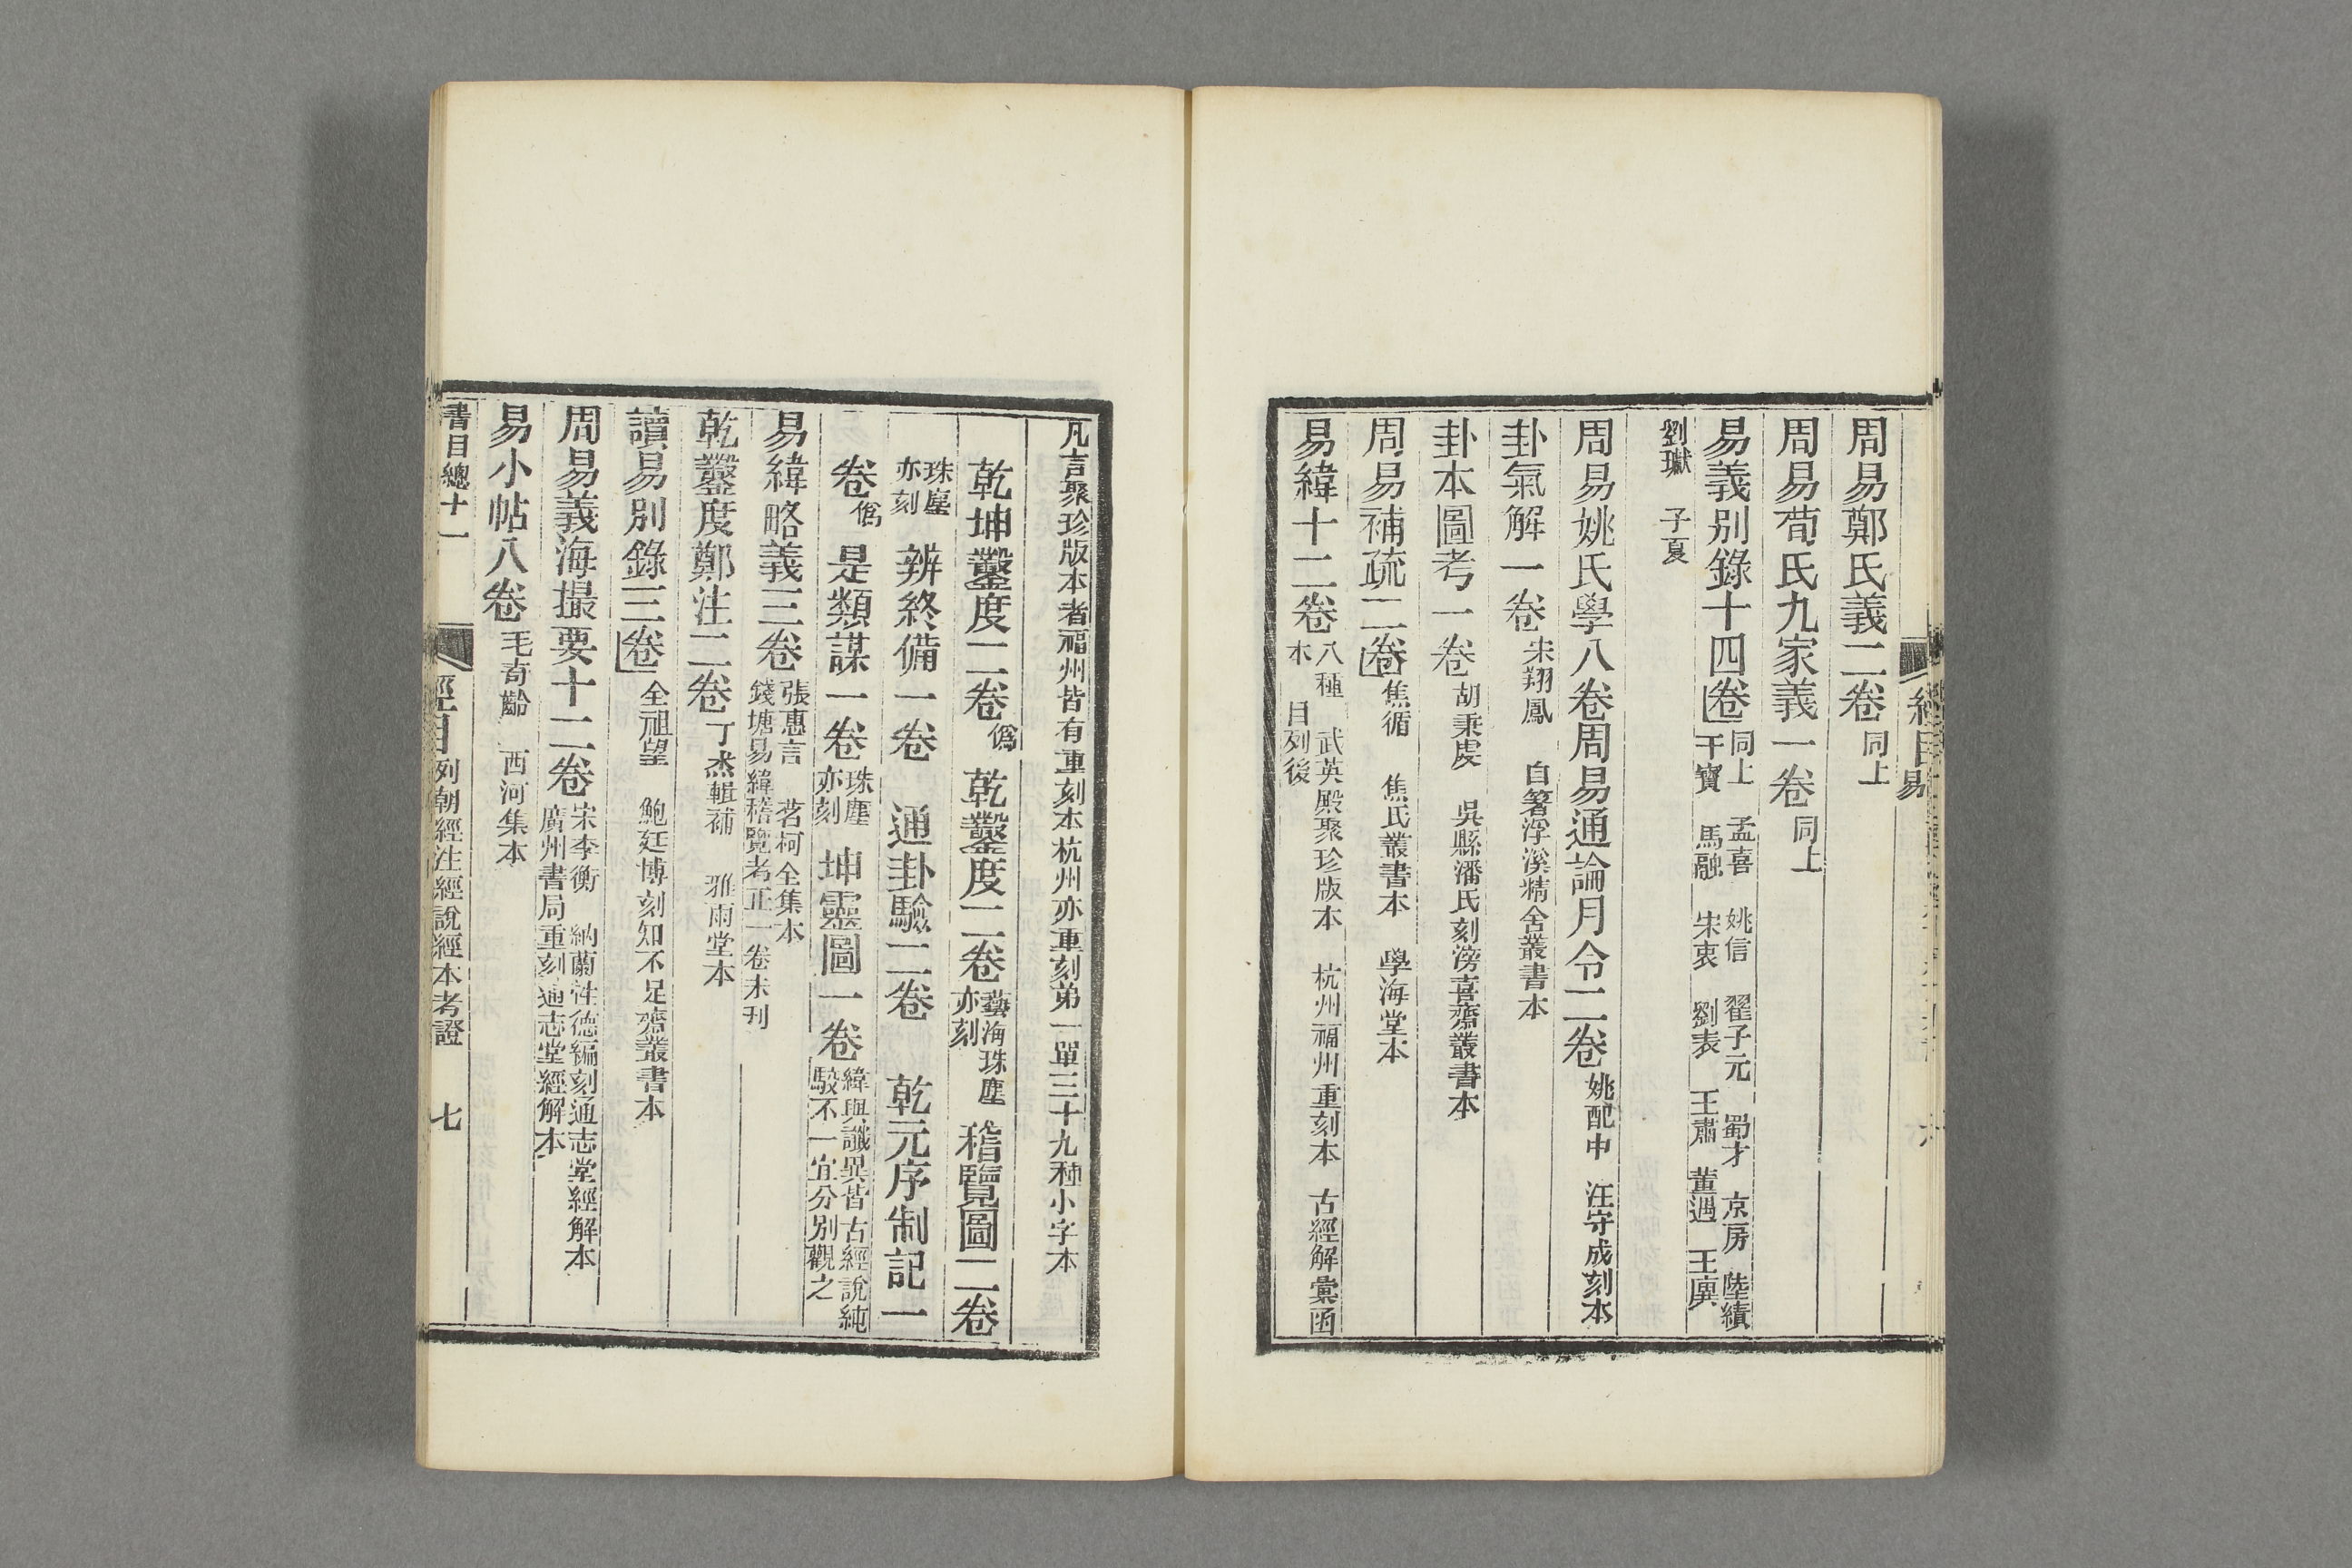 經目 易
周易鄭氏義二卷 同上
周易荀氏九家義一卷 同上
易義別錄十四卷 同上 孟喜 姚信 翟子元 蜀才 京房 陸績
干寶 馬融 宋衷 劉表 王肅 董遇 王廙
劉瓛 子夏
周易姚氏學八卷周易通論月令二卷 姚配中 汪守成刻本
卦氣解一卷 宋翔鳳 自箸浮溪精舍叢書本
卦本圖考一卷 胡秉虔 吳縣潘氏刻滂喜齋叢書本
周易補疏二卷 焦循 焦氏叢書本 學海堂本
易緯十二卷 八種 武英殿聚珍版本 杭州福州重刻本 古經解彙函
本 目列後
凡言聚珍版本者福州皆有重刻本杭州亦重刻弟一單三十九種小字本
乾坤鑿度二卷 僞 乾鑿度二卷 藝海珠塵
亦刻 稽覽圖二卷
珠塵
亦刻 辨終備一卷 通卦驗二卷 乾元序制記一
卷 僞 是類謀一卷 珠塵
亦刻 坤靈圖一卷 緯與讖異皆古經說純
駁不一宜分別觀之
易緯略義三卷 張惠言 茗柯全集本
錢塘易緯稽覽考正一卷未刊
乾鑿度鄭注二卷 丁杰輯補 雅雨堂本
讀易別錄三卷 全祖望 鮑廷博刻知不足齋叢書本
周易義海撮要十二卷 宋李衡 納蘭性德編刻通志堂經解本
廣州書局重刻通志堂經解本
易小帖八卷 毛奇齡 西河集本
書目總十一 經目 列朝經注經說經本考證 七